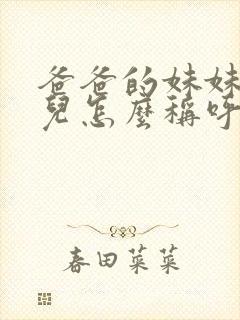 爸爸的妹妹
兒怎麼稱呼
春田菜菜